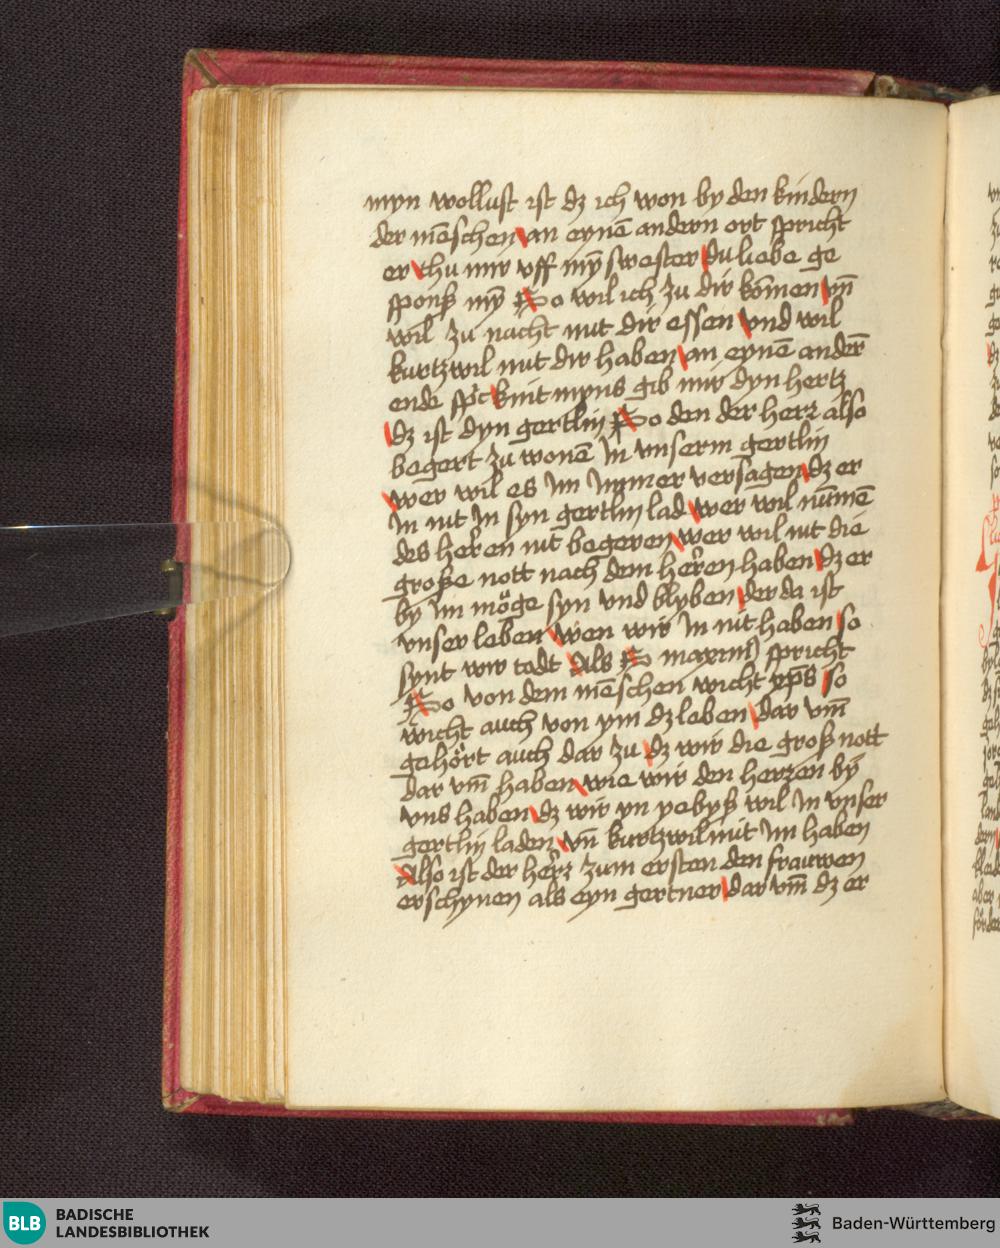 myn wollust ist dz ich won by den kindern
der mēschen an eynē andern ort spricht
er thu mir vff mȳ swester du liebe ge
sponß mȳ So wil ich zu dir kōmen vn̄
wil zu nacht mit dir essen vnd wil
kurtzwil mit dir haben an eynē anderē
ende spͨc kint myns gib mir dyn hertz
dz ist dyn gertlin So den der herz also
begert zu wonē In vnserm gertlin
wer wil es im immer versagen dz er
In nit In syn gertlin lad wer wil nūmē
des heren nit begeren wer wil nit die
große nott nach dem heren haben dz er
by im möge syn vnd blyben der da ist
vnser leben wen wir In nit haben so
synt wir todt Als S maximꝰ spricht
So von dem mēschen wicht xp̄s so
wicht auch von ym dz leben dar vm̄
gehört auch dar zu dz wir die groß nott
dar vm̄ haben wie wir den herzen by
vns haben dz wir yn yebyß wil In vnser
gertlin laden vn̄ kurtzwil mit Im haben
Also ist der herz zum ersten den frauwen
erschynen als eyn gertner dar vm̄ dz er
BLB BADISCHE
LANDESBIBLIOTHEK
Baden-Württemberg